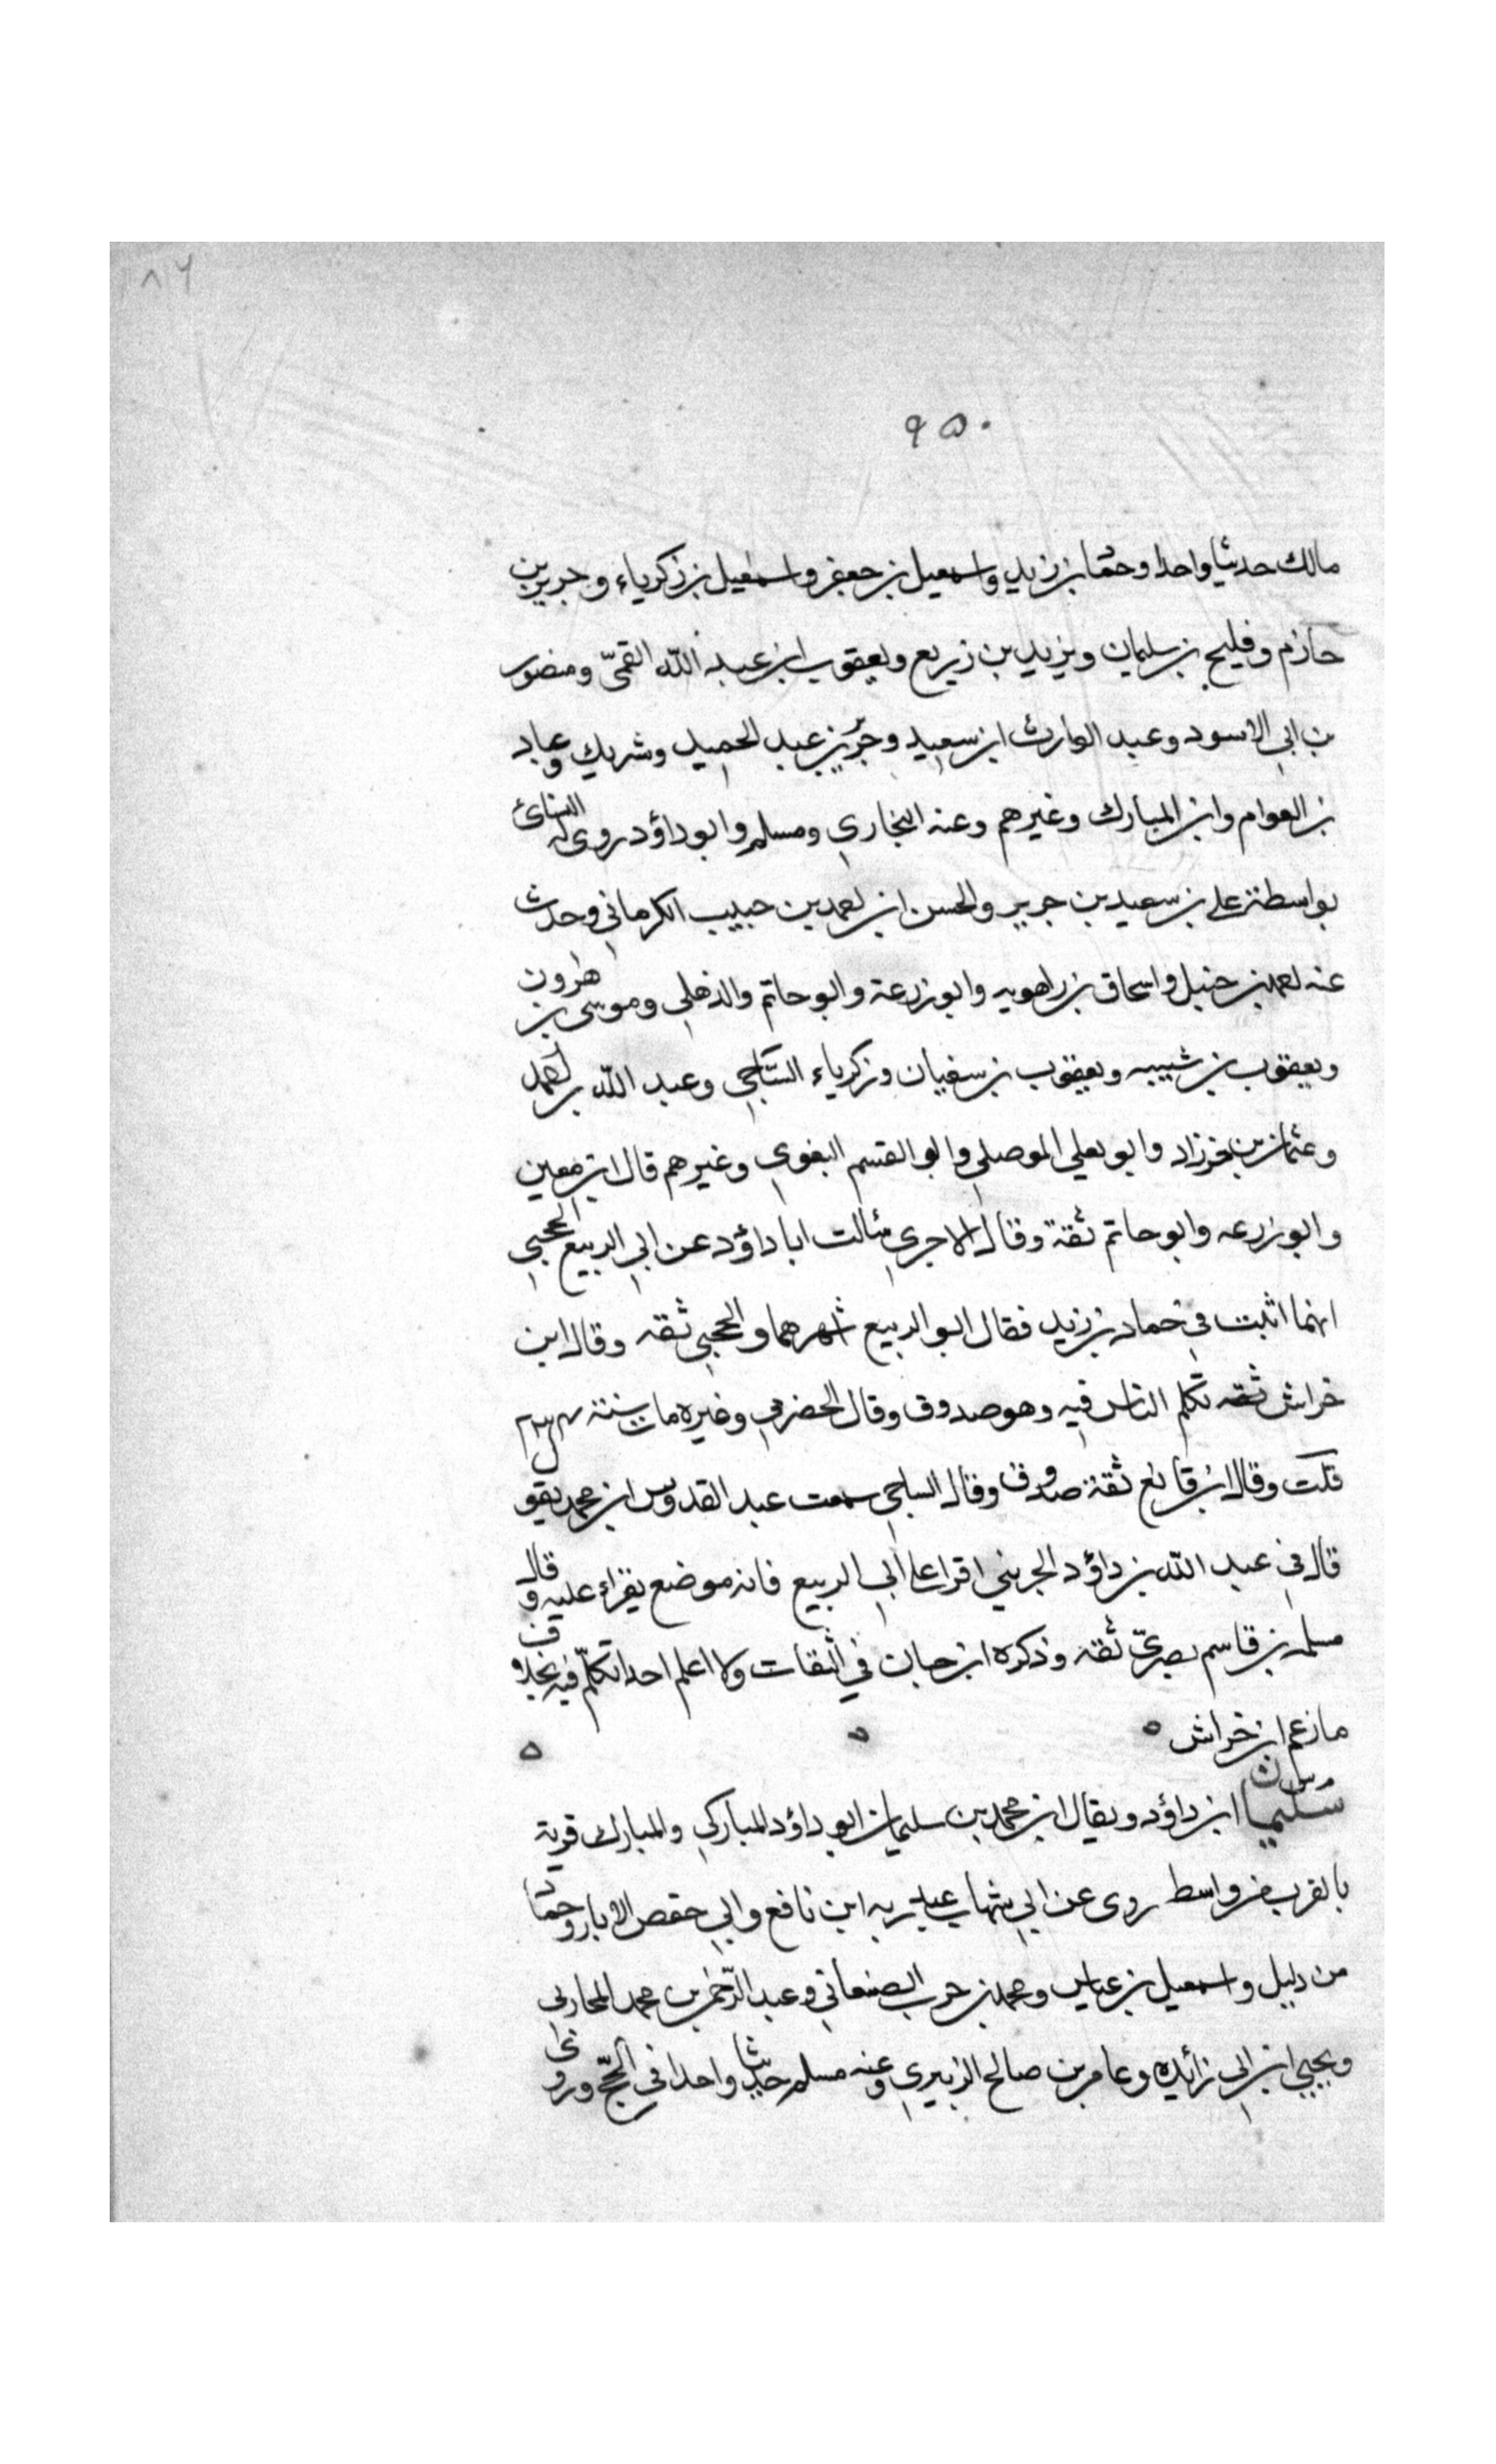 ٨٦
٩٥٠
مالك حديثا واحدا وحماد بن زيد واسمعيل بن جعفر واسمعيل بن زكرياء وجرير بن
حازم وفليح بن سليمان ويزيد بن زريع ويعقوب ابن عبد الله القمّى ومنصور
بن ابي الاسود وعبد الوارث ابن سعيد وجرير بن عبد الحميد وشريك وعباد
بن العوام وابن المبارك وغيرهم وعنه البخاري ومسلم وابو داؤد روى له النسائ
بواسطة على بن سعيد بن جرير والحسن ابن احمد بن حبيب الكرماني وحدث
عنه احمد بن حنبل واسحاق بن راهويه وابو زرعة وابو حاتم والذهلي وموسى بن هرون
ويعقوب بن شيبه ويعقوب بن سفيان وزكرياء السّاجي وعبد الله بن احمد
وعثمان بن خرزاد وابو يعلي الموصلي وابو القسم البغوي وغيرهم قال ابن معين
وابو زرعه وابو حاتم ثقة وقال الاجري سألت ابا داؤد عن ابي الربيع الحجبي
انهما اثبت في حماد بن زيد فقال ابو الربيع اشهرهما والحجبي ثقه وقال ابن
خراش ثقه تكلم الناس فيه وهو صدوق وقال الحضرمي وغيره مات سنة ٢٣٤
قلت وقال ابن قانع ثقة صدوق وقال الساجي سمعت عبد القدوس ابن محمد يقول
قال في عبد الله بن داؤد الخريبي اقرا على ابي الربيع فانه موضع يقراء عليه وقال
مسلمه بن قاسم بصريّ ثقه وذكره ابن حبان في الثقات ولا اعلم احدا تكلّم فيه بخلاف
ما زعم ابن خراش
م س
سليمان ابن داؤد ويقال ابن محمد بن سليمان ابو داؤد المباركي والمبارك قرية
بالقرب من واسط روى عن ابي شهاب عبد ربه ابن نافع وابي حفص الابار وحماد
من دليل واسمعيل بن عياس ومحمد بن حرب الصنعاني وعبد الرّحمن بن محمد المحاربي
ويحيي ابن ابي زائده وعامر بن صالح الزبيري وعنه مسلم حديثا واحدا في الحجّ وروى